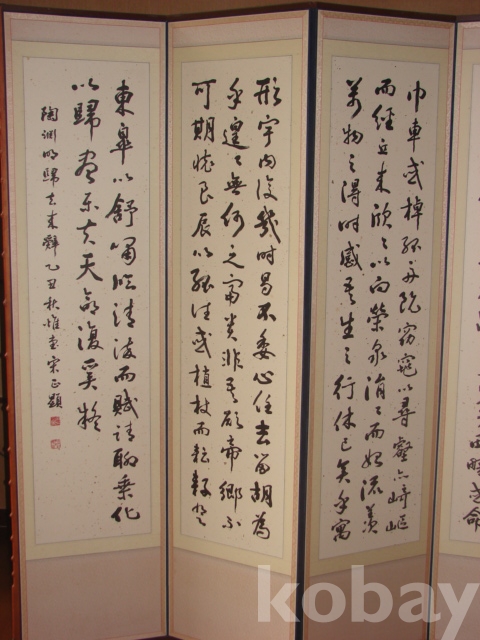 疇或命
巾車或棹孤舟既窈窕以尋壑亦崎嶇
而經丘木欣〻以向榮泉涓〻而始流羨
萬物之得時感吾生之行休已矣乎寓
形宇內復幾時曷不委心任去留胡為
乎遑〻何之富貴非吾願帝鄉不
可期懷良辰以孤往或植杖而耘耔登
東皐以舒嘯臨清流而賦詩聊乘化
以歸盡樂夫天命復奚疑
陶淵明歸去來辭乙丑秋惟堂宋正顯
kobay